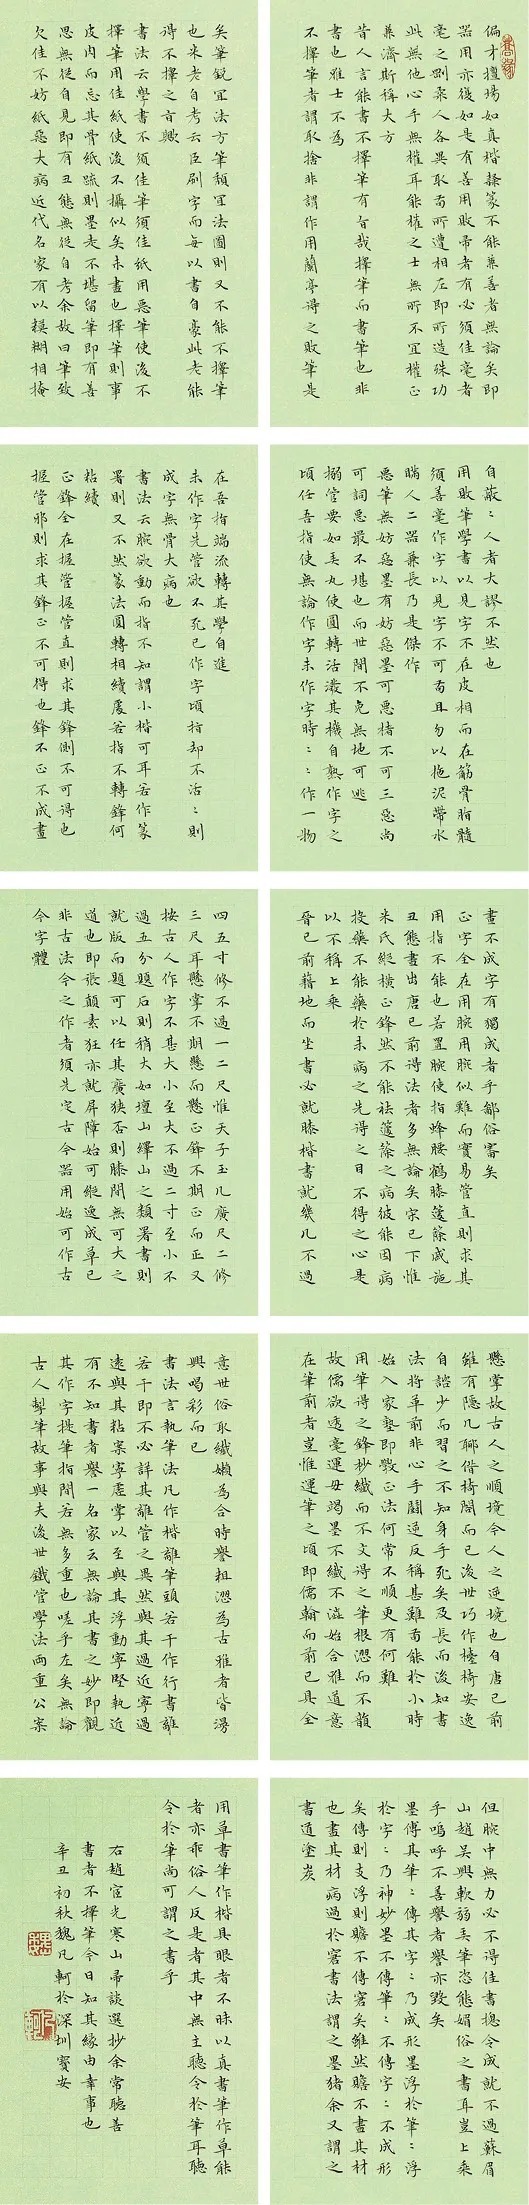 偏才擅場如真楷隸篆不能兼善者無論矣即
器用亦復如是有善用敗帚者有必須佳毫者
毫之剛柔人各異取苟所遭相左即所造殊功
此無他心手無權耳能權之士無所不宜權正
兼濟斯稱大方
昔人言能書不擇筆有旨哉擇筆而書筆也非
書也雅士不為
不擇筆者謂取捨非謂作用蘭亭得之敗筆是
矣筆銳宜法方筆頹宜法圓則又不能不擇筆
也米老自考云臣刷字而每以書自豪此老能
得不擇之旨歟
書法云學書不須佳筆須佳紙用惡筆使後不
擇筆用佳紙使後不懾似矣未盡也擇筆則事
皮內而忘其骨紙疏則墨走不堪留筆即有善
思無從自見即有丑態無從自考余故曰筆致
欠佳不妨紙惡大病近代名家有以模糊相掩
自蔽〻人者大謬不然也
用敗筆學書以見字不在皮相而在筋骨脂髓
須善毫作字以見字不可苟且勿以拖泥帶水
瞞人二器兼長乃是傑作
惡筆無妨惡墨有妨惡墨可惡楮不可三惡尚
可詞惡最不堪也而世間不免無地可逃
搦管要如弄丸使圓轉活潑其機自熟作字之
頃任吾指使無論作字未作字時〻〻作一物
在吾指端流轉其學自進
未作字先管欲不死已作字頃指却不活〻則
成字無骨大病也
書法云腕欲動而指不知謂小楷可耳若作篆
署則又不然篆法圓轉相續處若指不轉鋒何
粘續
正鋒全在握管握管直則求其鋒側不可得也
握管邪則求其鋒正不可得也鋒不正不成畫
畫不成字有獨成者乎鄙俗審矣
正字全在用腕用腕似難而實易管直則求其
用指不能也若置腕使指蜂腰鶴膝蘧篨戚施
丑態畫出唐已前得法者多無論矣宋已下惟
米氏縱橫正鋒然不能祛蘧篨之病彼能因病
投藥不能藥於未病之先得之目不得之心是
以不稱上乘
晉已前藉地而坐書必就膝楷書就幾几不過
四五寸修不過一二尺惟天子玉几廣尺二修
三尺耳懸掌不期懸而懸正鋒不期正而正又
按古人作字不甚大小至大不過二寸至小不
過五分題石則稍大如壇山繹山之類署書則
就版而題可以任其廣狹否則膝間無可大之
道也即張顛素狂亦就屏障始可縱逸成草已
非古法今之作者須先定古今器用始可作古
今字體
懸掌故古人之順境今人之逆境也自唐已前
雖有隱几聊借椅閣而已後世巧作檯椅安逸
自諮少而習之不知身手死矣及長而後知書
法將革前非心手鬬逆反稱甚難苟能於小時
始入家塾即斅正法何常不順更有何難
用筆得之鋒杪纖而不文得之筆根澀而不韻
故儒欲透毫運毋竭墨不纖不溢始合雅道意
在筆前者豈惟運筆之頃即儒翰而前已具全
意世俗取纖媚為合時譽粗澀為古雅者皆漫
興喝彩而已
書法言執筆法凡作楷離筆頭若干作行書離
若干即不必詳其離管之異然與其過近寧過
遠與其粘案寧虛掌以至與其浮動寧堅執近
有不知書者譽一名家云無論其書之妙即觀
其作字捉筆指間若無多重也嗟乎左矣無論
古人掣筆故事與夫後世鐵管學法兩重公案
但腕中無力必不得佳書揔令成就不過蘇眉
山趙吳興軟弱丟筆恣態媚俗之書耳豈上乘
乎嗚呼不善譽者譽亦毀矣
墨傳其筆〻傳其字〻乃成形墨浮於筆〻浮
於字〻乃神妙墨不傳筆〻不傳字〻不成形
矣傳則支浮則贍不傳窘矣雖然贍不盡其材
也盡其材病過於窘書法謂之墨豬余又謂之
書道塗炭
用草書筆作楷具眼者不昧以真書筆作草能
者亦乖俗人反是者其中無主聽令於筆耳聽
令於筆尚可謂之書乎
右趙宧光寒山帚談選抄余常聽善
書者不擇筆今日知其緣由幸事也
辛丑初秋魏凡軻於深圳寶安